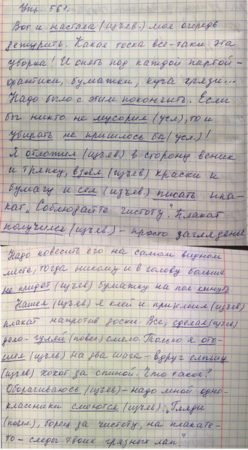 Упр. 561.
Вот и настала (изъяв.) моя очередь
дежурить. Какая тоска все-таки эта
уборка! И опять под каждой партой -
фантики, бумажки, куча грязи...
Надо было с этим покончить. Если
бы никто не мусорил (усл), то и
убирать не пришлось бы (усл.)!
Я отложил (изъяв) в сторону веник
и тряпку, взял (изъяв) краски и
бумагу и сел (изъяв) писать пла-
кат "Соблюдайте чистоту". Плакат
получился (изъяв) - просто загляденье
Надо повесить его на самом видном
месте, тогда никому и в голову больше
не придет (изъяв) бумажку на пол кинуть
Нашел (изъяв) я клей и приклеил (изъяв)
плакат напротив доски. Все, сделал (изъяв)
дело - гуляй (повел) смело. Только я ото-
шел (изъяв) на два шага - вдруг слышу
(изъяв) хохот за спиной. Что такое?
Оборачиваюсь (изъяв) - надо мной одно-
классники смеются (изъяв): "Гляди
(повел), борец за чистоту, на плакате-
то - следы твоих грязных лап."